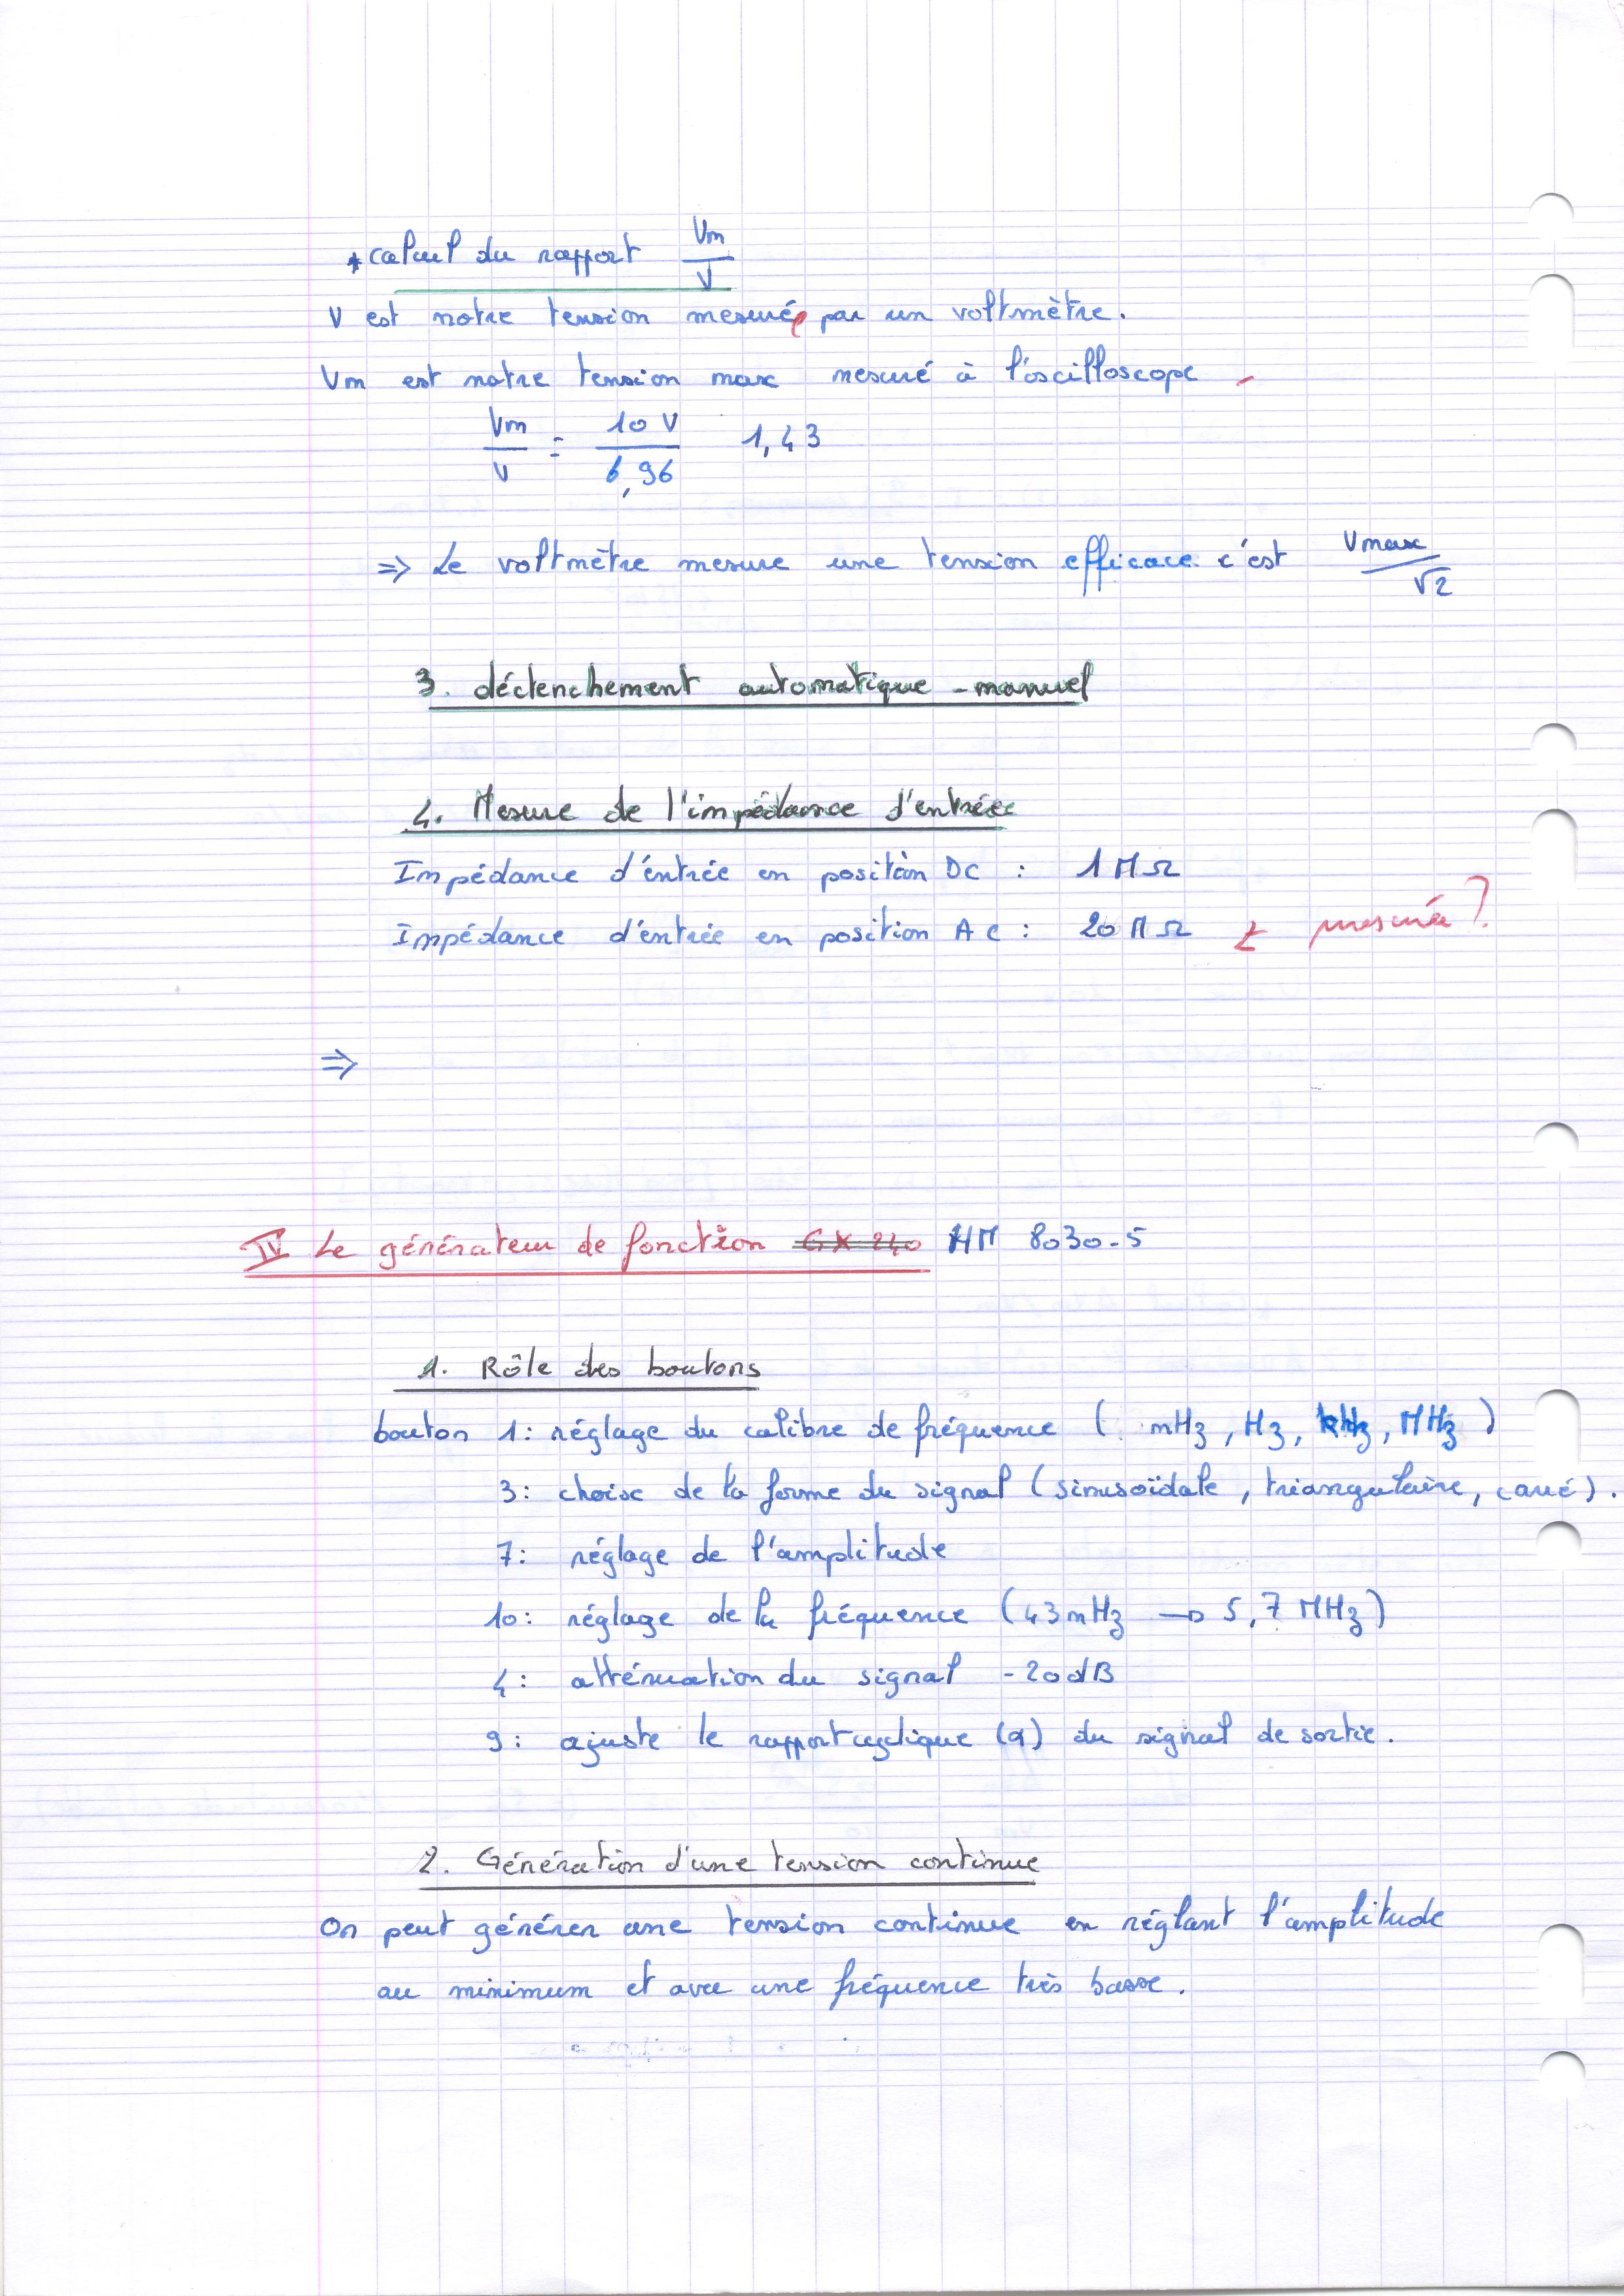 * calcul du rapport Vm/V
V est notre tension mesurée par un voltmètre.
Vm est notre tension max mesuré à l'oscilloscope
Vm/V = 10 V/6,96 1,43
⇒ Le voltmètre mesure une tension efficace c'est Vmax/√2
3. déclenchement automatique - manuel
4. Mesure de l'impédance d'entrée
Impédance d'entrée en position DC : 1 MΩ
Impédance d'entrée en position AC : 20 MΩ mesurée ?
⇒
IV Le générateur de fonction GX 240 HM 8030-5
1. Rôle des boutons
bouton 1: réglage du calibre de fréquence ( mHz, Hz, kHz, MHz )
3: choix de la forme du signal (sinusoïdale, triangulaire, carré).
7: réglage de l'amplitude
10: réglage de la fréquence (43mHz → 5,7 MHz)
4: atténuation du signal -20dB
9: ajuste le rapport cyclique (α) du signal de sortie.
2. Génération d'une tension continue
On peut générer une tension continue en réglant l'amplitude
au minimum et avec une fréquence très basse.